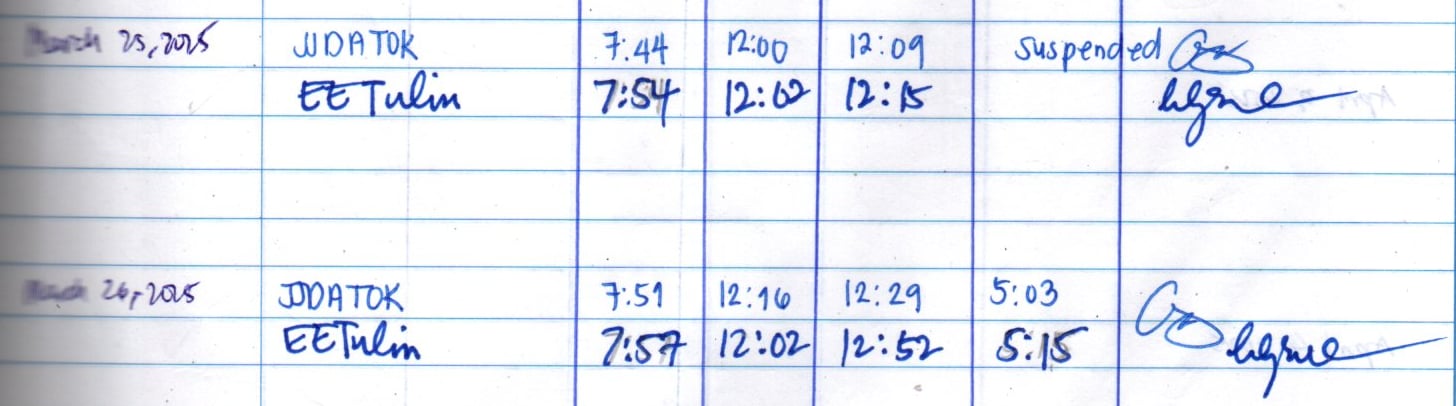 March 25, 2025 JJDATOK 7:44 12:00 12:09 suspended
EETulin 7:54 12:02 12:15
March 26, 2025 JJDATOK 7:51 12:16 12:29 5:03
EETulin 7:57 12:02 12:52 5:15